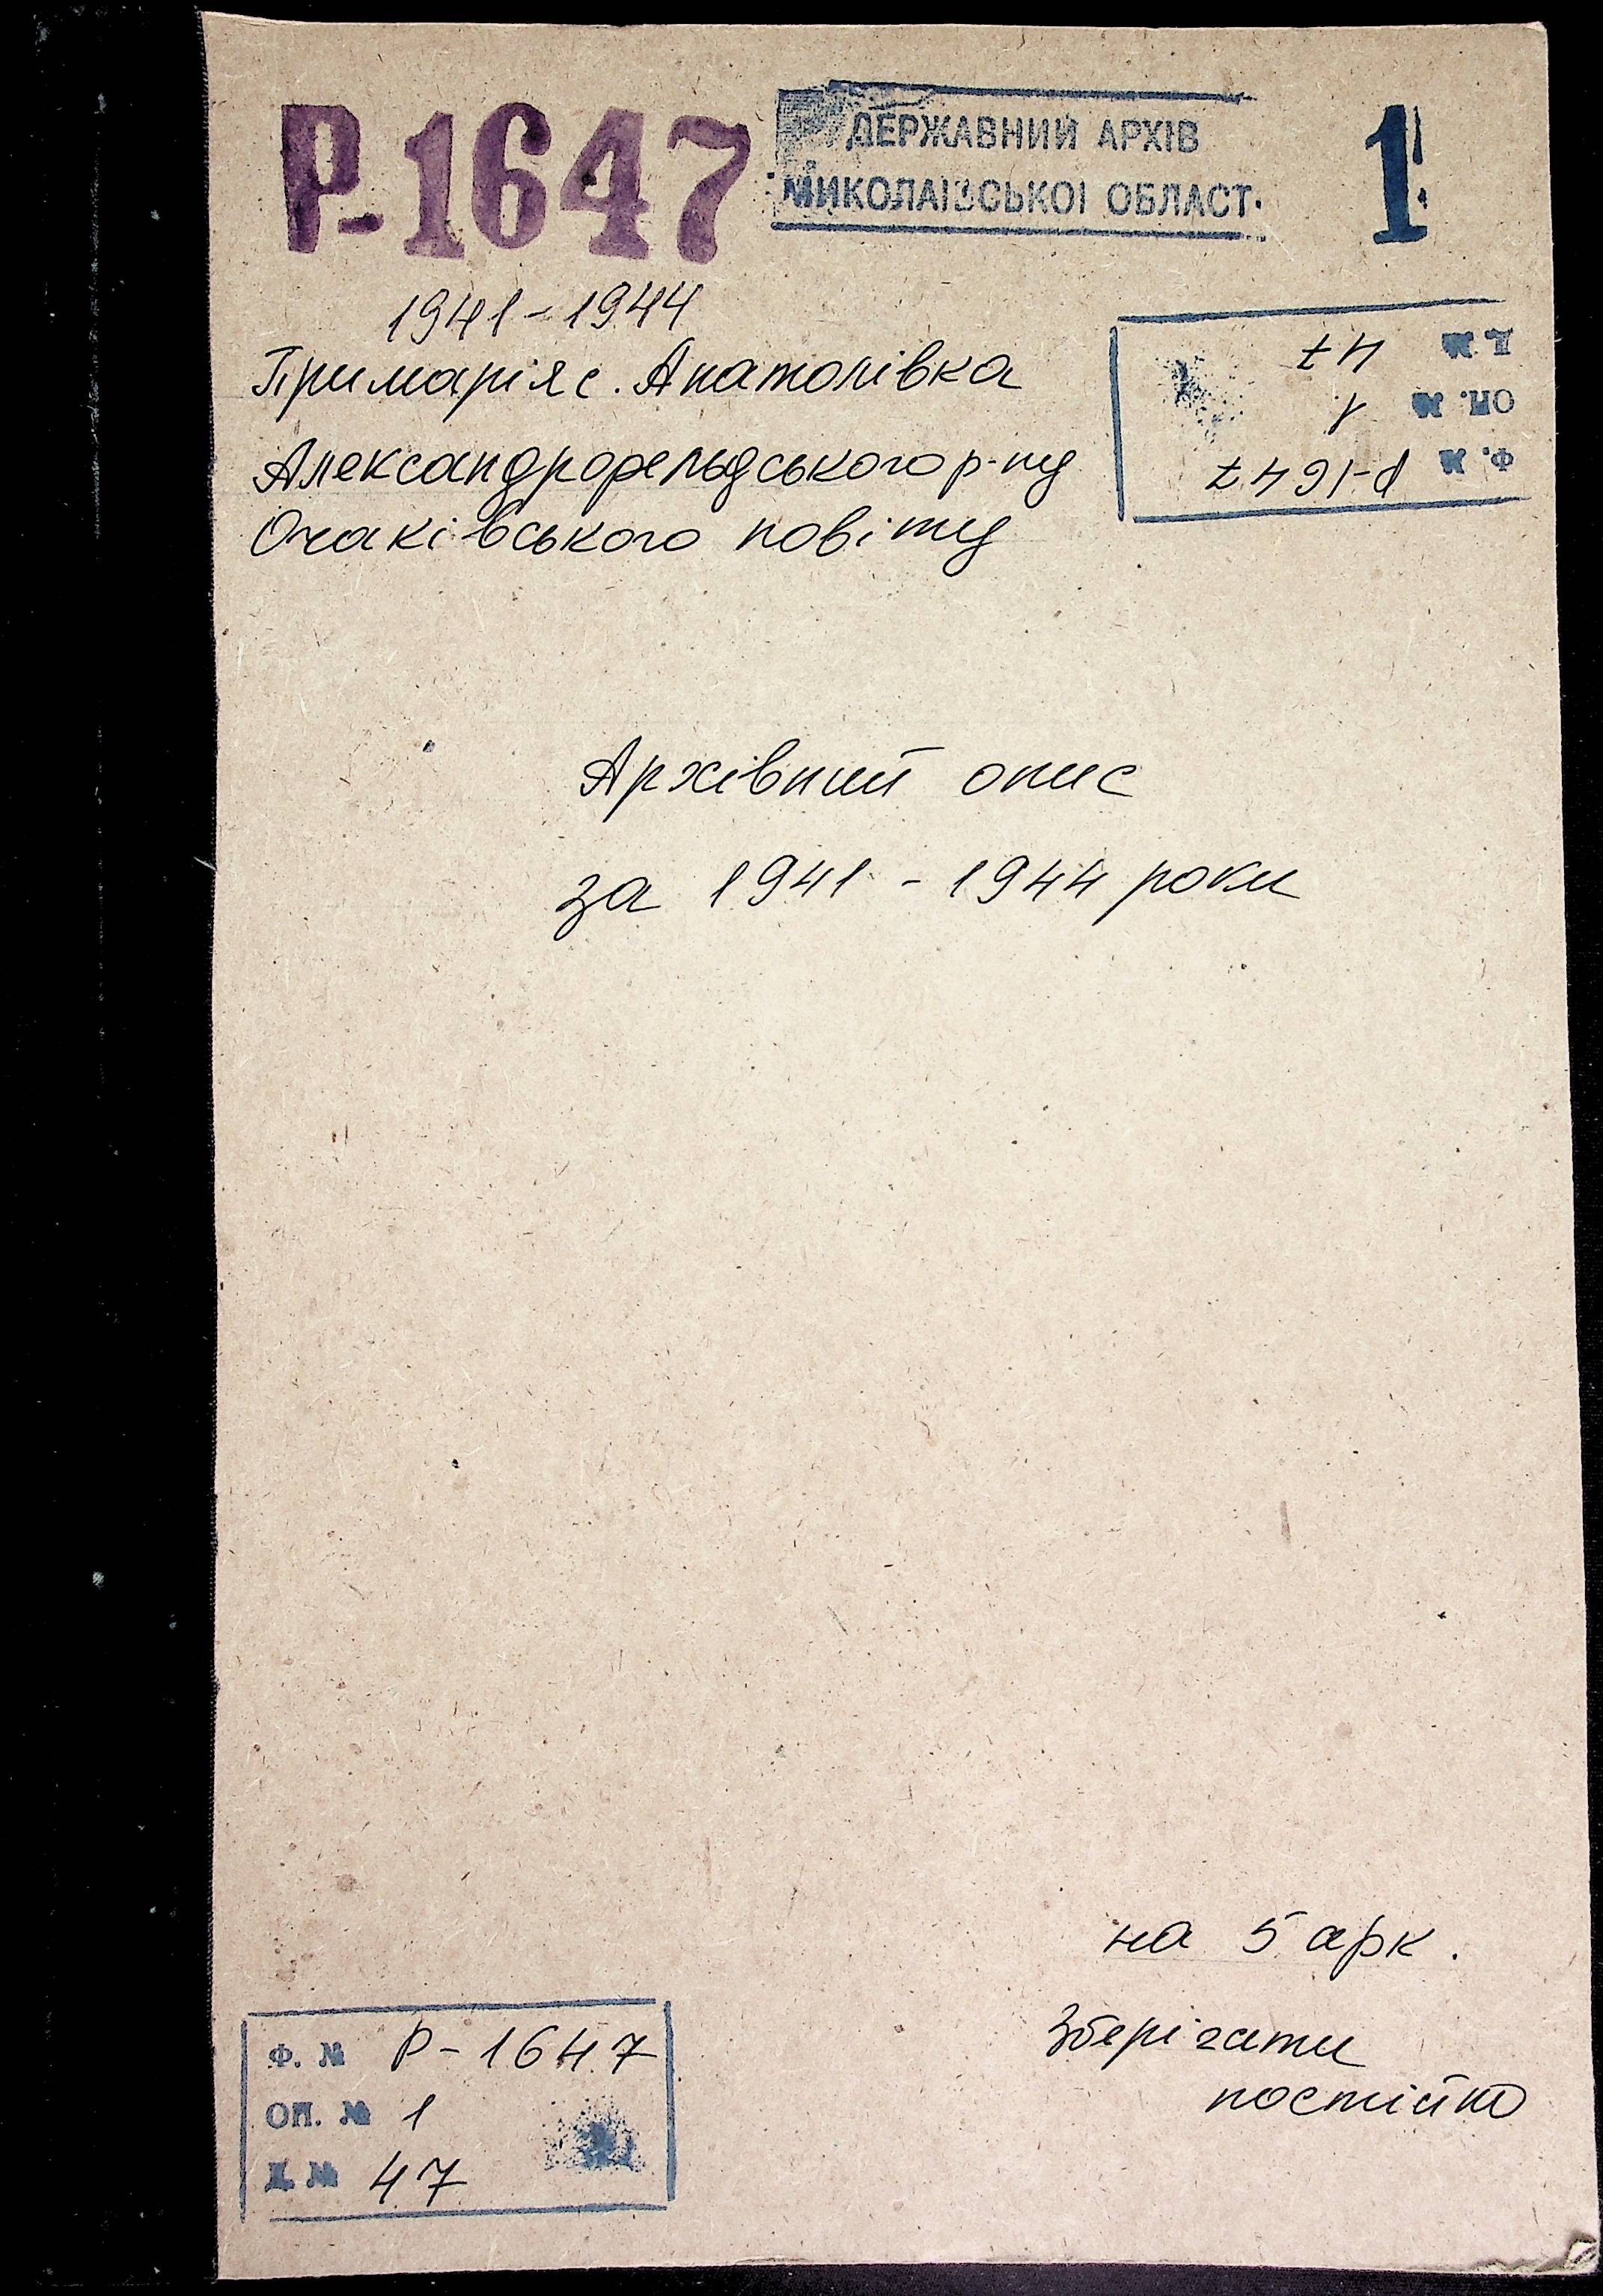 Р-1647
ДЕРЖАВНИЙ АРХІВ
МИКОЛАЇВСЬКОІ ОБЛАСТ
1
1941-1944
Примарія с. Анатолівка
Александрофельдського р-ну
Очаківського повіту
Д. № 47
ОП. № 1
Ф. № Р-1647
Архівний опис
за 1941 - 1944 роки
на 5 арк.
Зберігати
постійно
Ф. № Р-1647
ОП. № 1
Д. № 47